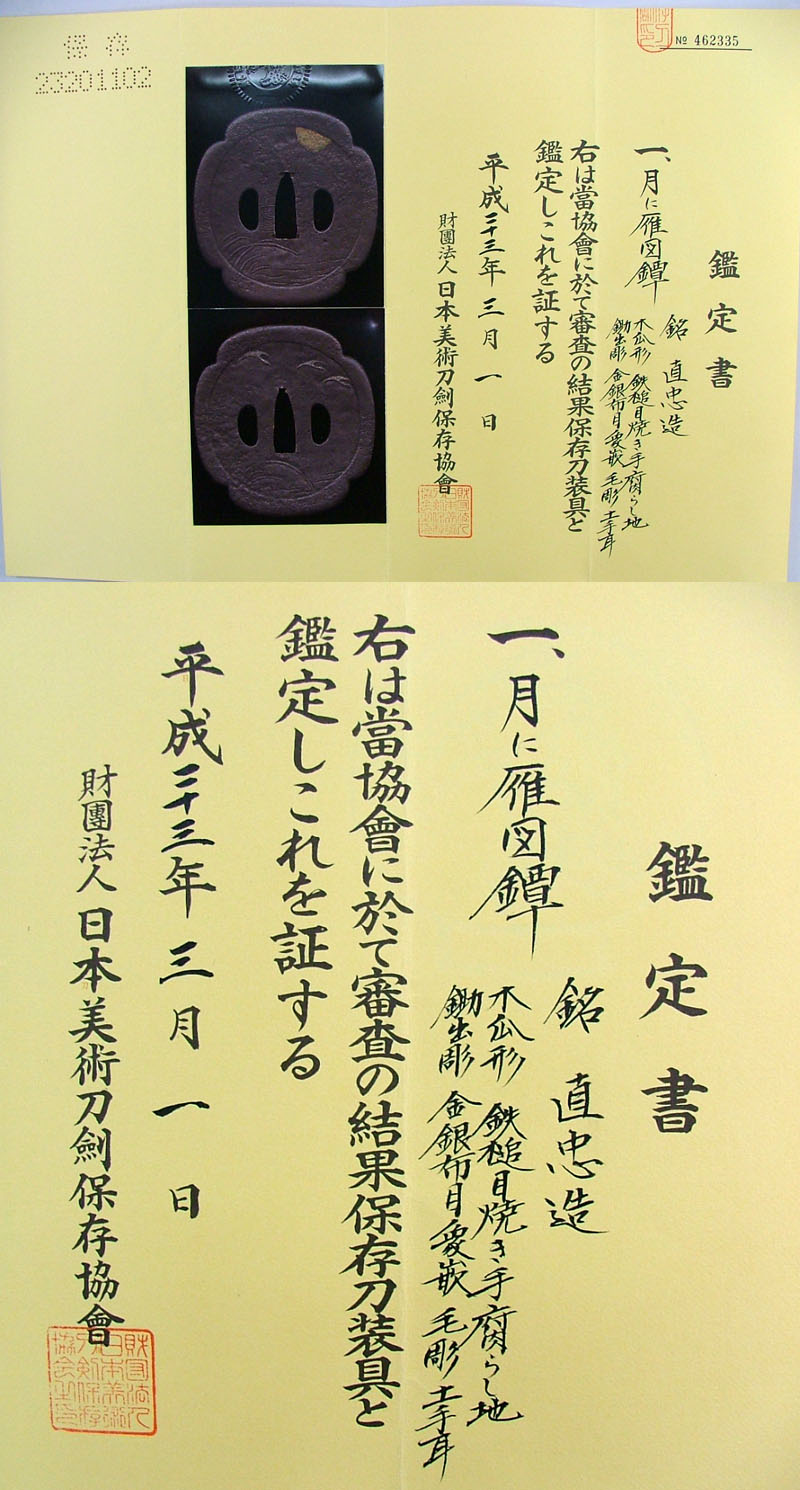 № 462335
保存
23201102
鑑定書
一、月に雁図鐔
銘 直忠造
木瓜形 鉄槌目焼き手腐らし地
鋤出彫 金銀布目象嵌 毛彫 土手耳
右は當協會に於て審査の結果保存刀装具と
鑑定しこれを証する
平成二十三年 三月 一日
財團法人 日本美術刀劍保存協會
鑑定書
一、月に雁図鐔
銘 直忠造
木瓜形 鉄槌目焼き手腐らし地
鋤出彫 金銀布目象嵌 毛彫 土手耳
右は當協會に於て審査の結果保存刀装具と
鑑定しこれを証する
平成二十三年 三月 一日
財團法人 日本美術刀劍保存協會